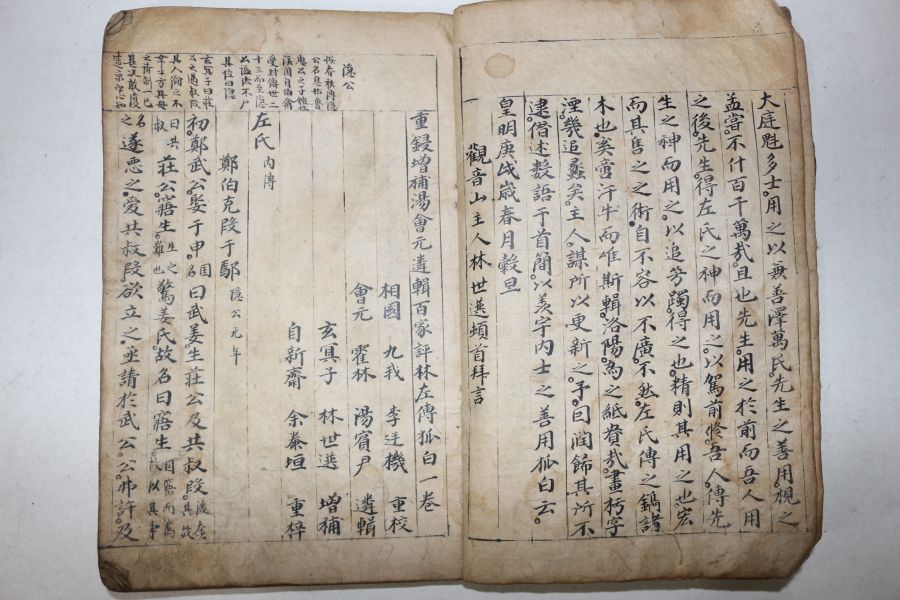 大庭魁多士用之以兼善澤萬民先生之善用視之
孟嘗不什百千萬哉且也先生用之於前而吾人用
之後先生得左氏之神而用之以駕前修吾人傳先
生之神而用之以追芳躅得之也精則其用之也宏
而其售之之術自不容以不廣不然左氏傳之鐫諸
木也奚啻汗牛而雄斯輯洛陽為之紙貴哉畫朽字
湮幾追蠡矣主人謀所以更新之予曰潤飾其所不
逮僭述數語于首簡以羨宇內士之善用狐白云
皇明庚戌歲春月穀旦
觀音山主人林世選頓首拜言
隱公
重鋟增補湯會元遴輯百家評林左傳狐白一卷
相國 九我 李廷機 重校
會元 霍林 湯賓尹 遴輯
玄冥子 林世選 增補
自新齋 余秦垣 重梓
左氏 內傳
鄭伯克段于鄢 隱公元年
初鄭武公娶于申國名曰武姜生莊公及共叔段
莊公寤生驚姜氏故名曰寤生
遂惡之愛共叔段欲立之亟請於武公公弗許及